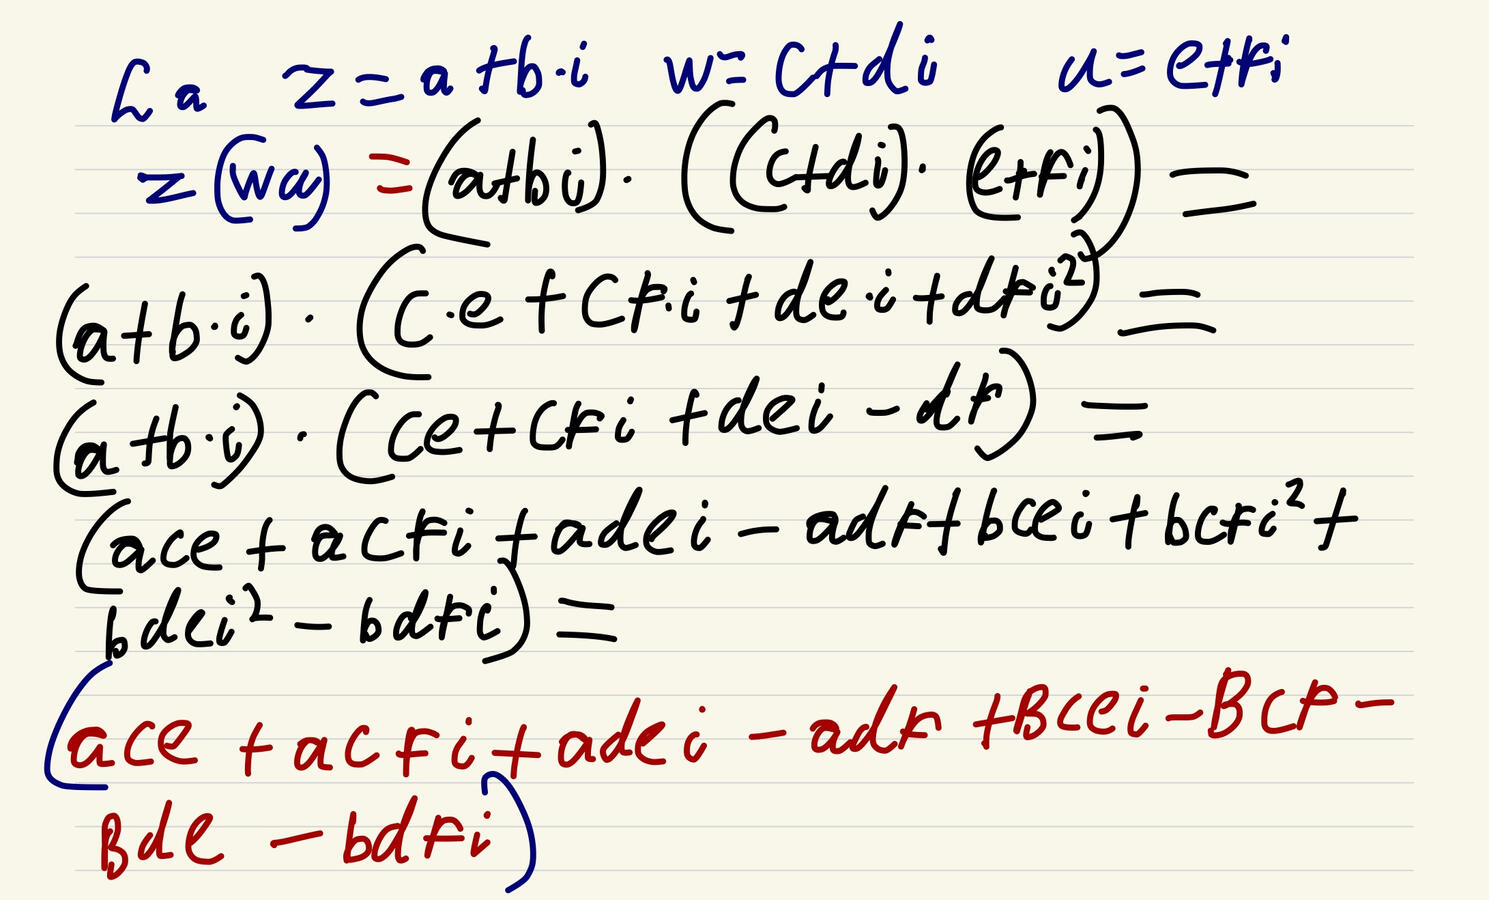 La z = a+b·i w= c+di u= e+fi
z(wu) = (a+bi)·((c+di)·(e+fi)) =
(a+b·i)·(c·e+cf·i+de·i+dfi²) =
(a+b·i)·(ce+cfi+dei-df) =
(ace+acfi+adei-adf+bcei+bcfi²+
bdei²-bdfi) =
(ace+acfi+adei-adf+Bcei-Bcf-
Bde-bdfi)